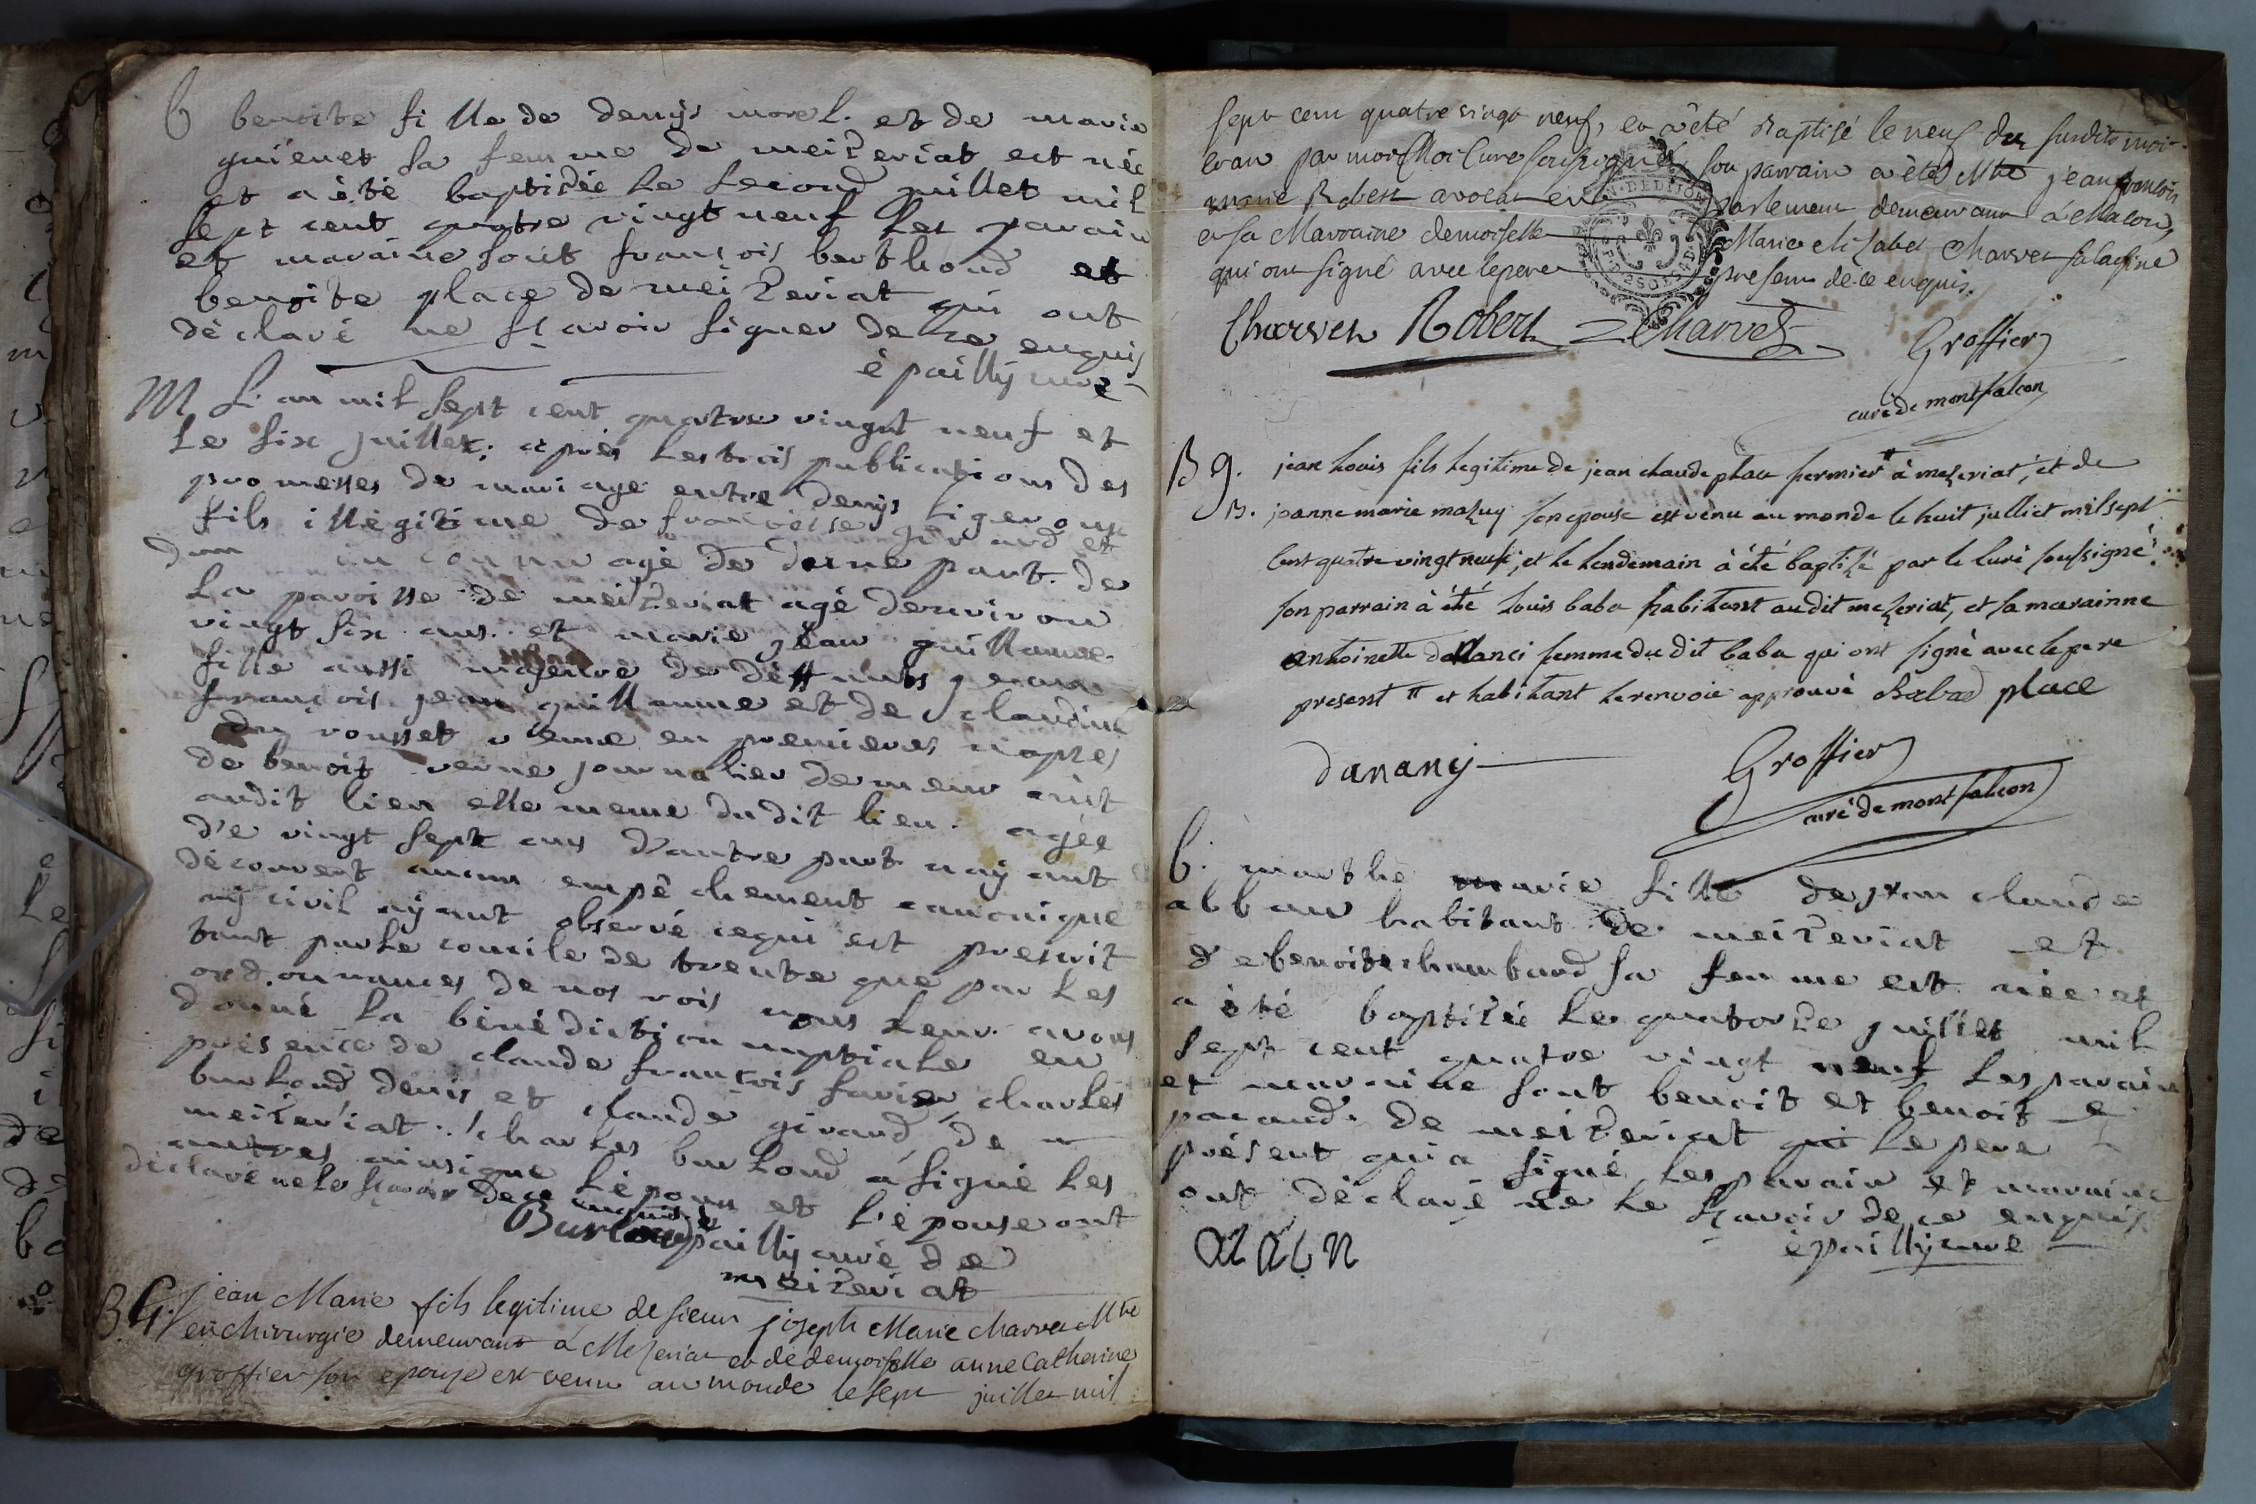 b benoite fille de denys morel et de marie
guienet sa femme de meizeriat est née
et a été baptizée le second juillet mil
sept cent quatre vingt neuf les parain
et maraine sont francois berthoud et
benoite place de meizeriat qui ont
déclaré ne sçavoir signer de ce enquis
épailly curé
M L'an mil sept cent quatre vingt neuf et
le six juillet; après les trois publications des
promesses de mariage entre denys
fils illégitime de francoise girard et
d'un inconnu agé de d'une part de
la paroisse de meizeriat agé denviron
vingt six ans et marie jean guillaume
fille aussi majeure de deffunts jean
françois jean guillaume et de claudine
rousset veuve en premieres nopces
de benoit verne journalier demeurant
audit lieu elle meme dudit lieu agée
de vingt sept ans d'autre part n'ayant
découvert aucun empêchement canonique
ny civil ayant observé ce qui est prescrit
tant par le concile de trente que par les
ordonnances de nos rois nous leur avons
donné la bénédiction nuptiale en
présence de claude francois favier charles
burloud denis et claude girard, de
meizeriat. charles burloud a signé les
autres ainsi que l'epoux et l'épouse ont
déclaré ne le sçavoir de ce enquis
Burloud épailly curé de
meizeriat
B. G. jean Marie fils legitime de sieur joseph Marie charvet Mtre
en chirurgie demeurant à Mezeriat et de demoiselle anne Catherine
groffier son epouse est venu au monde le sept juillet mil
sept cent quatre vingt neuf, et a été Baptisé le neuf du susdit mois
et an par moi Curé soussigné, son parrain a été Mtre jean françois
marie Robert avocat en parlement demeurant à Macon,
et sa Marraine demoiselle Marie elisabet Charvet
qui ont signé avec le pere present de ce enquis.
Charvet Robert Charvet
Groffier
curé de montfalcon
B g. jean louis fils legitime de jean claude place fermier # à mezeriat, et de
B. jeanne marie mazuy son epouse est venu au monde le huit julliet mil sept
cent quatre vingt neuf; et le lendemain à été baptizé par le curé soussigné
son parrain à été louis baba habitant audit mezeriat, et sa marainne
antoinette dananci femme du dit baba qui ont signé avec le pere
present # et habitant le renvoie approuvé Babad place
dananÿ
Groffier
curé de montfalcon
b. marthe marie fille de jean claude
alban habitant de meizeriat et
de benoite chambard sa femme est née et
a été baptizée le quatorze juillet mil
sept cent quatre vingt neuf les parain
et maraine sont benoit et benoit e
pacaud de meizeriat le pere
présent qui a signé les parain et maraine
ont déclaré ne le sçavoir de ce enquis
épailly curé